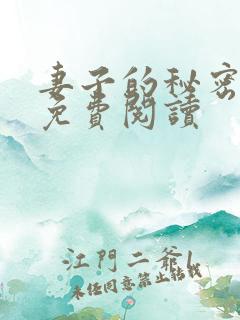 妻子的秘密
免費閱讀
江門二爺l
未經同意禁止轉載